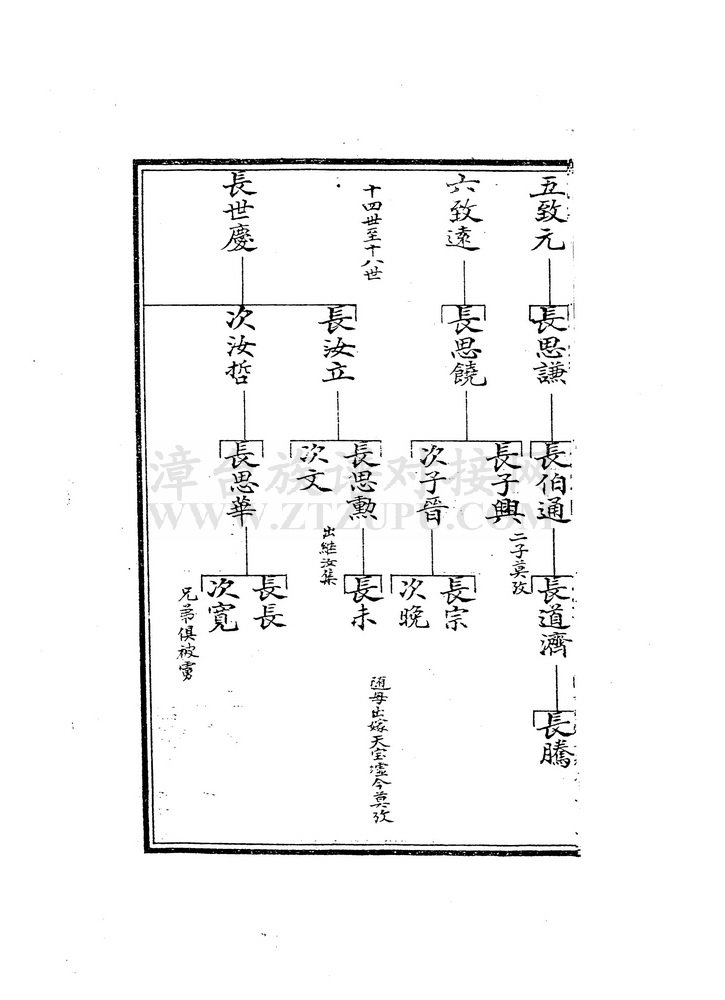 五致元
長思謙
長伯通
長道濟
長騰
六致遠
長思饒
長子興
二子莫攷
次子晉
長宗
次晚
十四世至十八世
長世慶
長汝立
長思勲
長未
隨母出嫁天宝墟今莫攷
次文
出繼汝集
次汝哲
長思華
長長
次寬
兄弟俱被虜
漳台族谱对接网
WWW.ZTZUPU.COM